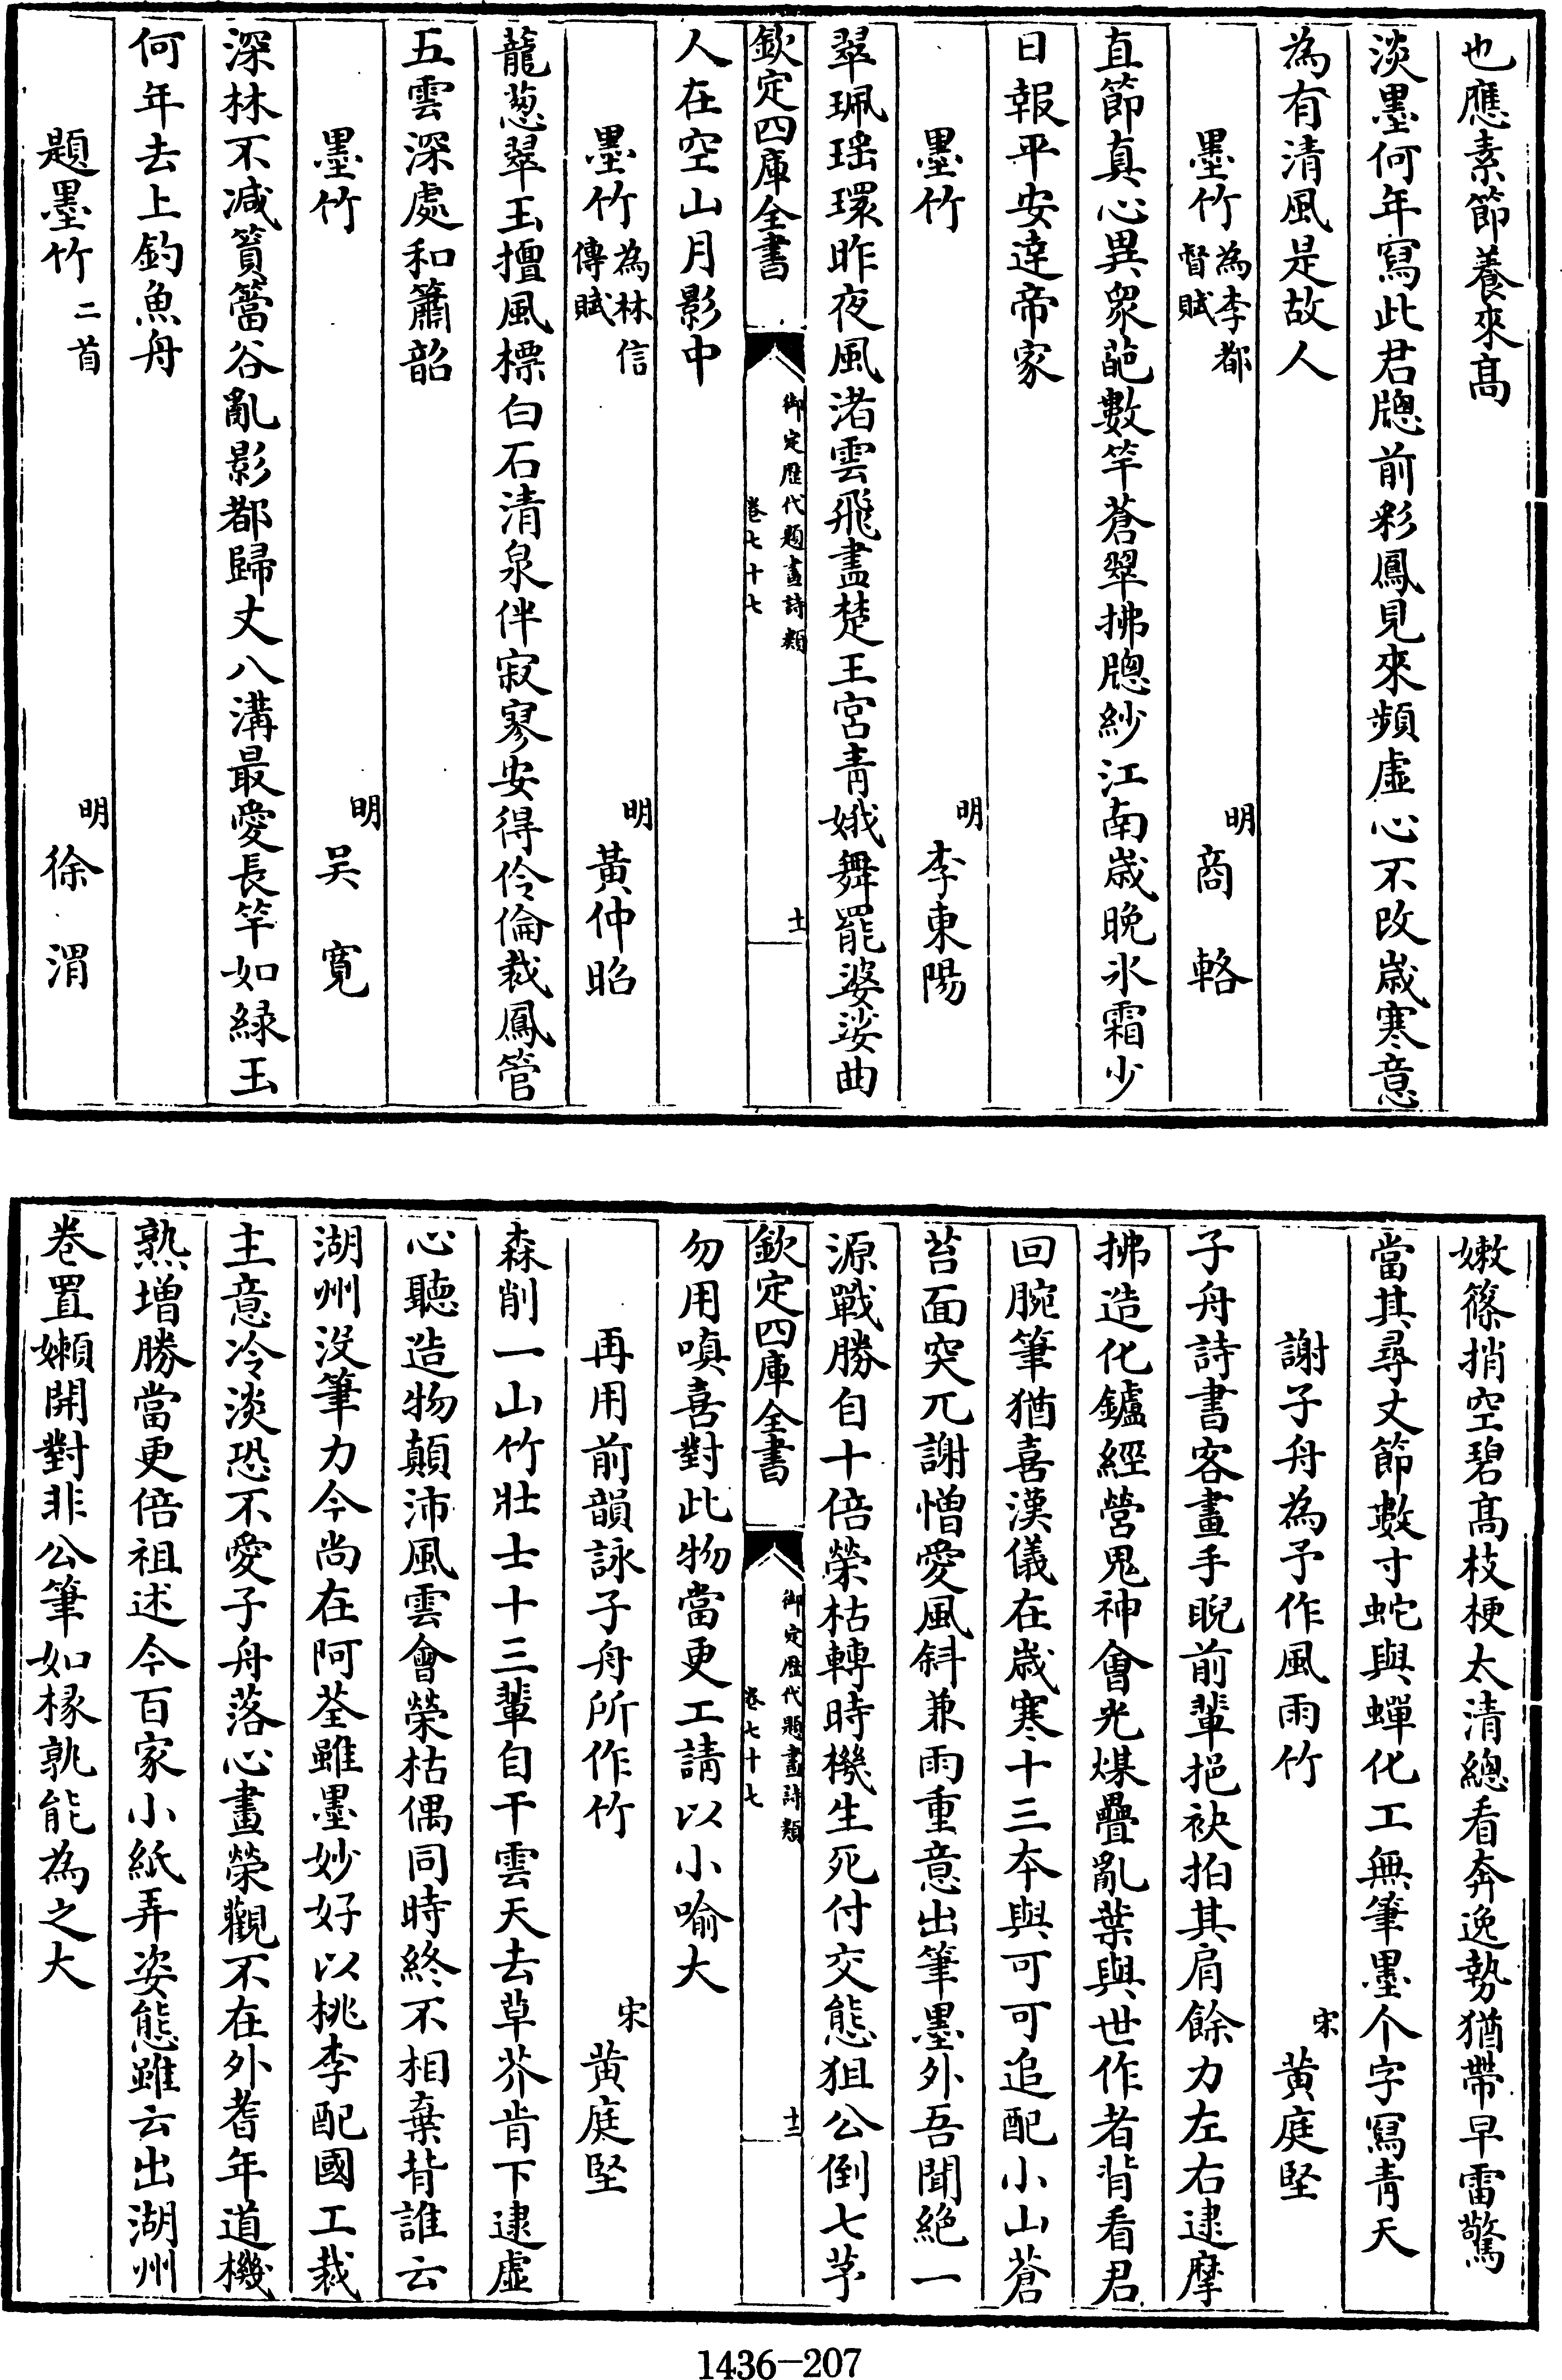 也應素節養來髙
淡墨何年寫此君牕前彩鳳見來頻虛心不改歳寒意
為有清風是故人
墨竹為李都督賦 明商輅
直節真心異衆葩數竿蒼翠拂牕紗江南歳晚氷霜少
日報平安達帝家
墨竹 明李東陽
翠珮瑶環昨夜風渚雲飛盡楚王宮青娥舞罷婆娑曲
欽定四庫全書 御定歴代題畫詩類 卷七十七 十一
人在空山月影中
墨竹為林信傳賦 明黃仲昭
蘢葱翠玉擅風標白石清泉伴寂寥安得伶倫裁鳳管
五雲深處和簫韶
墨竹 明吴寛
深林不減篔簹谷亂影都歸丈八溝最愛長竿如緑玉
何年去上釣魚舟
題墨竹二首 明徐渭
嫩篠捎空碧髙枝梗太清總看奔逸勢猶帶早雷驚
當其尋丈節數寸蛇與蟬化工無筆墨个字寫青天
謝子舟為予作風雨竹 宋黄庭堅
子舟詩書客畫手睨前輩挹袂拍其肩餘力左右逮摩
拂造化鑪經營鬼神會光煤疊亂葉與世作者背看君
回腕筆猶喜漢儀在歳寒十三本與可可追配小山蒼
苔面突兀謝憎愛風斜兼雨重意出筆墨外吾聞絶一
源戰勝自十倍榮枯轉時機生死付交態狙公倒七芧
欽定四庫全書 御定歴代題畫詩類 卷七十七 十二
勿用嗔喜對此物當更工請以小喻大
再用前韻詠子舟所作竹 宋黄庭堅
森削一山竹壯士十三輩自干雲天去草芥肯下逮虛
心聽造物顛沛風雲會榮枯偶同時終不相棄背誰云
湖州没筆力今尚在阿荃雖墨妙好以桃李配國工裁
主意冷淡恐不愛子舟落心畫榮觀不在外耆年道機
熟增勝當更倍祖述今百家小紙弄姿態雖云出湖州
卷置嬾開對非公筆如椽孰能為之大
1436-207